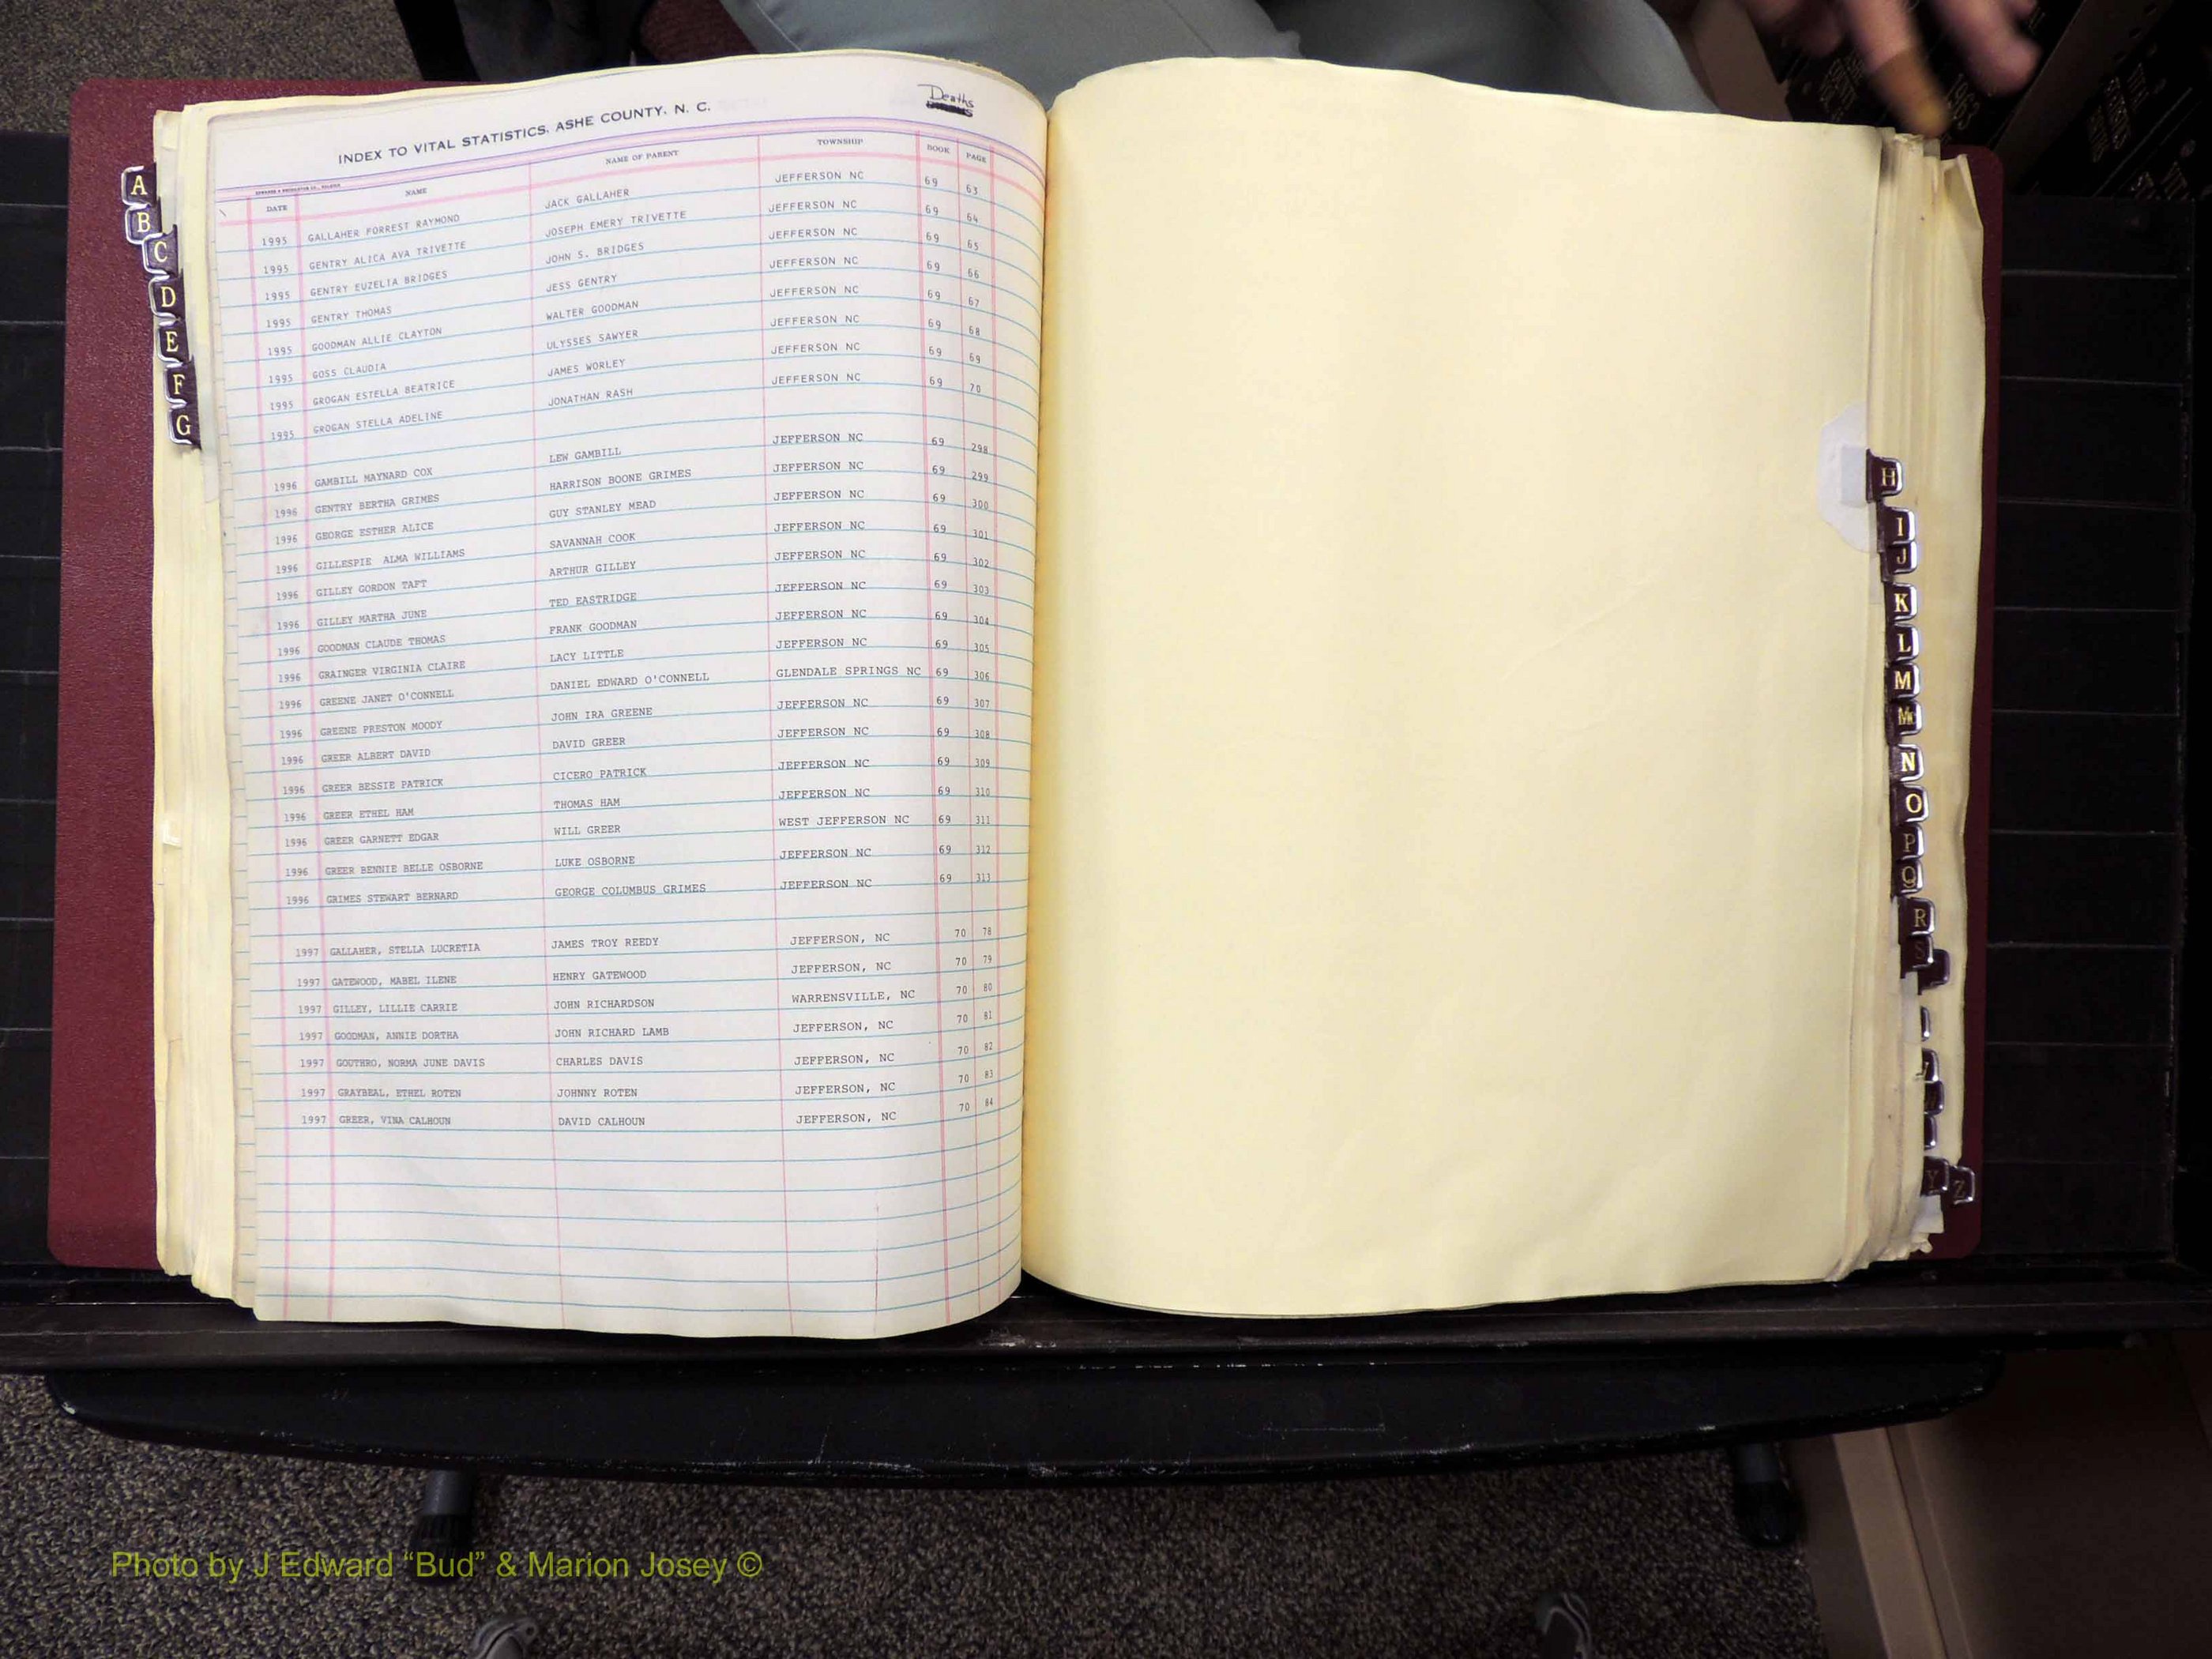 Deaths
INDEX TO VITAL STATISTICS, ASHE COUNTY, N. C.
DATE NAME NAME OF PARENT TOWNSHIP BOOK PAGE
1995 GALLAHER FORREST RAYMOND JACK GALLAHER JEFFERSON NC 69 63
1995 GENTRY ALICA AVA TRIVETTE JOSEPH EMERY TRIVETTE JEFFERSON NC 69 64
1995 GENTRY EUZELIA BRIDGES JOHN S. BRIDGES JEFFERSON NC 69 65
1995 GENTRY THOMAS JESS GENTRY JEFFERSON NC 69 66
1995 GOODMAN ALLIE CLAYTON WALTER GOODMAN JEFFERSON NC 69 67
1995 GOSS CLAUDIA ULYSSES SAWYER JEFFERSON NC 69 68
1995 GROGAN ESTELLA BEATRICE JAMES WORLEY JEFFERSON NC 69 69
1995 GROGAN STELLA ADELINE JONATHAN RASH JEFFERSON NC 69 70
1996 GAMBILL MAYNARD COX LEW GAMBILL JEFFERSON NC 69 298
1996 GENTRY BERTHA GRIMES HARRISON BOONE GRIMES JEFFERSON NC 69 299
1996 GEORGE ESTHER ALICE GUY STANLEY MEAD JEFFERSON NC 69 300
1996 GILLESPIE ALMA WILLIAMS SAVANNAH COOK JEFFERSON NC 69 301
1996 GILLEY GORDON TAFT ARTHUR GILLEY JEFFERSON NC 69 302
1996 GILLEY MARTHA JUNE TED EASTRIDGE JEFFERSON NC 69 303
1996 GOODMAN CLAUDE THOMAS FRANK GOODMAN JEFFERSON NC 69 304
1996 GRAINGER VIRGINIA CLAIRE LACY LITTLE JEFFERSON NC 69 305
1996 GREENE JANET O'CONNELL DANIEL EDWARD O'CONNELL GLENDALE SPRINGS NC 69 306
1996 GREENE PRESTON MOODY JOHN IRA GREENE JEFFERSON NC 69 307
1996 GREER ALBERT DAVID DAVID GREER JEFFERSON NC 69 308
1996 GREER BESSIE PATRICK CICERO PATRICK JEFFERSON NC 69 309
1996 GREER ETHEL HAM THOMAS HAM JEFFERSON NC 69 310
1996 GREER GARNETT EDGAR WILL GREER WEST JEFFERSON NC 69 311
1996 GREER BENNIE BELLE OSBORNE LUKE OSBORNE JEFFERSON NC 69 312
1996 GRIMES STEWART BERNARD GEORGE COLUMBUS GRIMES JEFFERSON NC 69 313
1997 GALLAHER, STELLA LUCRETIA JAMES TROY REEDY JEFFERSON, NC 70 78
1997 GATEWOOD, MABEL ILENE HENRY GATEWOOD JEFFERSON, NC 70 79
1997 GILLEY, LILLIE CARRIE JOHN RICHARDSON WARRENSVILLE, NC 70 80
1997 GOODMAN, ANNIE DORTHA JOHN RICHARD LAMB JEFFERSON, NC 70 81
1997 GOUTHRO, NORMA JUNE DAVIS CHARLES DAVIS JEFFERSON, NC 70 82
1997 GRAYBEAL, ETHEL ROTEN JOHNNY ROTEN JEFFERSON, NC 70 83
1997 GREER, VINA CALHOUN DAVID CALHOUN JEFFERSON, NC 70 84
A
B
C
D
E
F
G
H
I
J
K
L
M
Mc
N
O
P
Q
R
S
Y
Z
1963
Photo by J Edward “Bud” & Marion Josey ©